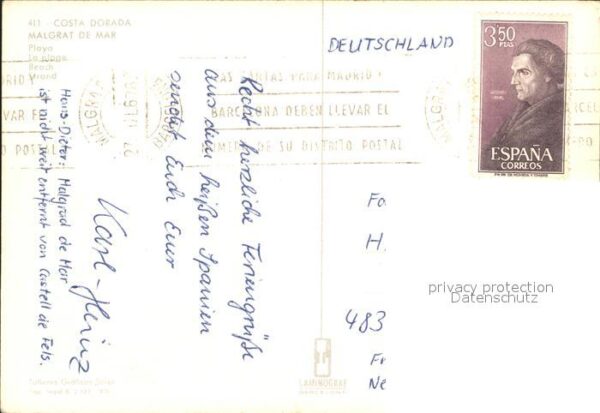 411 - COSTA DORADA
MALGRAT DE MAR
Playa
La plage
Beach
Strand
DEUTSCHLAND
3,50
PTAS
ESPAÑA
CORREOS
CARTAS PARA MADRID Y
BARCELONA DEBEN LLEVAR EL
NUMERO DE SU DISTRITO POSTAL
MALGRAT
Recht herzliche Feriengrüße
aus dem heißen Spanien
sendet Euch Euer
Karl-Heinz
Hans-Dieter: Malgrad de Mar
ist nicht weit entfernt von Castell de Fels.
Fa
H.
483
Fr
Ne
privacy protection
Datenschutz
LAMINOGRAF
BARCELONA